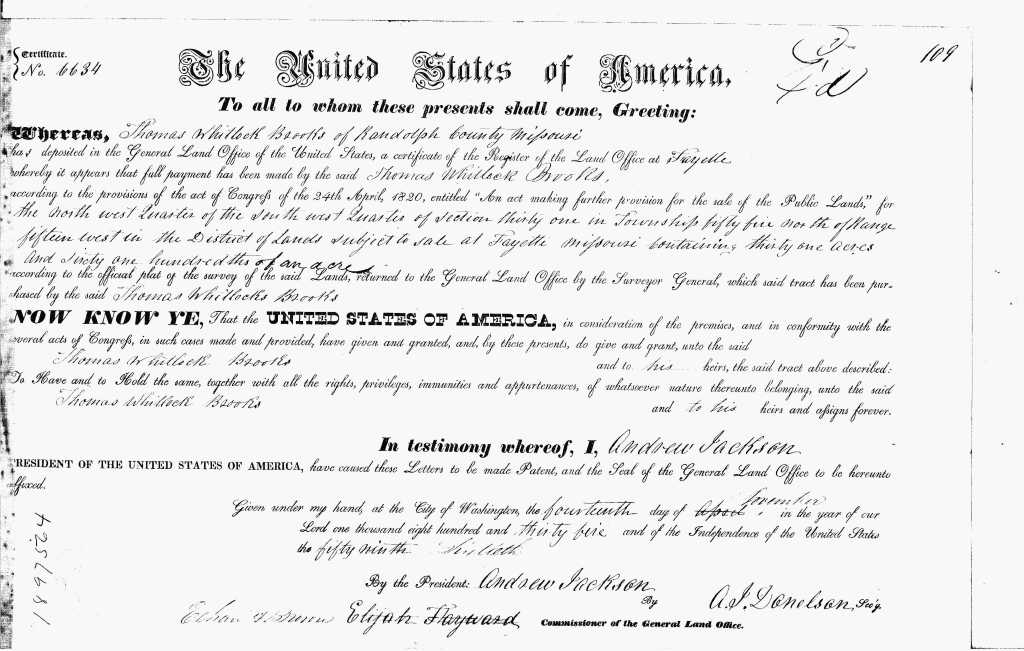 Certificate.
No. 6634
109
The United States of America,
To all to whom these presents shall come, Greeting:
Whereas, Thomas Whitlock Brooks of Randolph County Missouri
has deposited in the General Land Office of the United States, a certificate of the Register of the Land Office at Fayette
whereby it appears that full payment has been made by the said Thomas Whitlock Brooks,
according to the provisions of the act of Congress of the 24th April, 1820, entitled "An act making further provision for the sale of the Public Lands," for
the North west Quarter of the South west Quarter of Section thirty one in Township fifty five North of Range
fifteen west in the District of Lands subject to sale at Fayette Missouri containing thirty one acres
And Sixty one hundredths of an acre
according to the official plat of the survey of the said Lands, returned to the General Land Office by the Surveyor General, which said tract has been pur-
chased by the said Thomas Whitlocks Brooks
NOW KNOW YE, That the UNITED STATES OF AMERICA, in consideration of the premises, and in conformity with the
several acts of Congress, in such cases made and provided, have given and granted, and, by these presents, do give and grant, unto the said
Thomas Whitlock Brooks
and to his heirs, the said tract above described:
To Have and to Hold the same, together with all the rights, privileges, immunities and appurtenances, of whatsoever nature thereunto belonging, unto the said
Thomas Whitlock Brooks
and to his heirs and assigns forever.
In testimony whereof, I, Andrew Jackson
PRESIDENT OF THE UNITED STATES OF AMERICA, have caused these Letters to be made Patent, and the Seal of the General Land Office to be hereunto
affixed.
November
Given under my hand, at the City of Washington, the fourteenth day of April, in the year of our
Lord one thousand eight hundred and thirty five and of the Independence of the United States
the fifty ninth Sixtieth
By the President: Andrew Jackson
By A. J. Donelson, Sec'y.
Ethan A Brown Elijah Hayward Commissioner of the General Land Office.